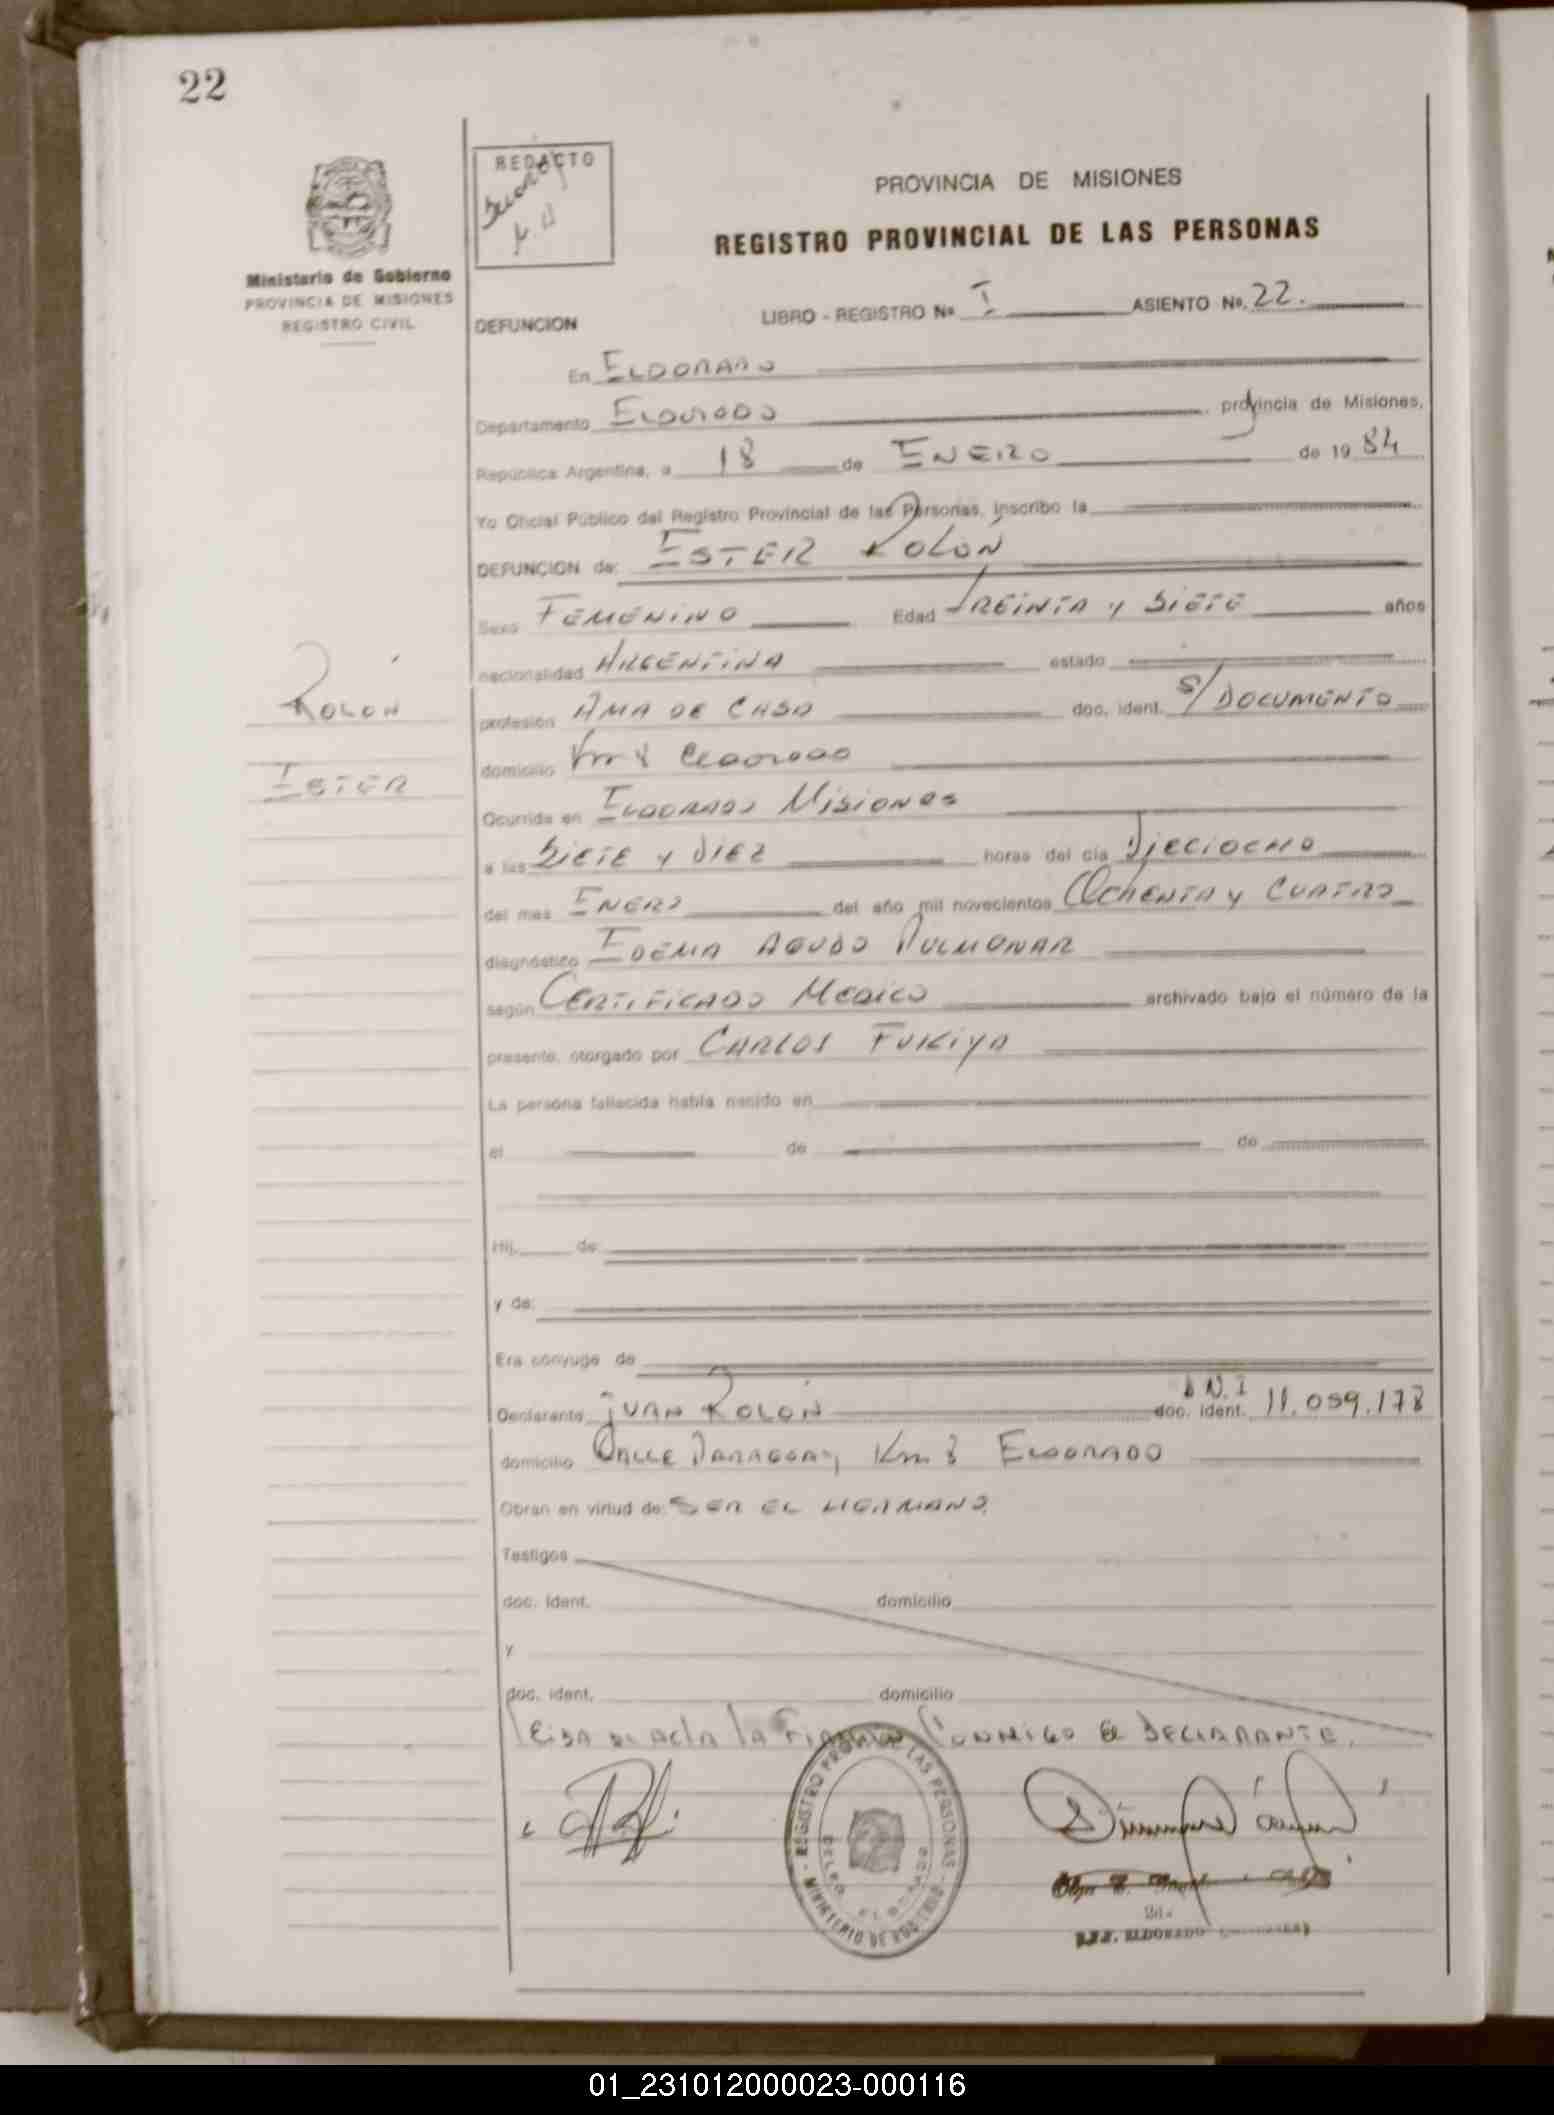 22
REDACTO
Ministerio de Gobierno
PROVINCIA DE MISIONES
REGISTRO CIVIL
PROVINCIA DE MISIONES
REGISTRO PROVINCIAL DE LAS PERSONAS
DEFUNCION LIBRO - REGISTRO Nº I ASIENTO Nº 22.
En ELDORADO
Departamento ELDORADO provincia de Misiones,
República Argentina, a 18 de ENERO de 1984
Yo Oficial Público del Registro Provincial de las Personas, inscribo la
DEFUNCION de: ESTER ROLON
Sexo FEMENINO Edad TREINTA y SIETE años
nacionalidad ARGENTINA estado
ROLON
profesión AMA DE CASA doc. ident. S/DOCUMENTO
domicilio Km 8 ELDORADO
ESTER
Ocurrida en ELDORADO MISIONES
a las SIETE y DIEZ horas del día DIECIOCHO
del mes ENERO del año mil novecientos OCHENTA y CUATRO
diagnóstico EDEMA AGUDO PULMONAR
según CERTIFICADO MEDICO archivado bajo el número de la
presente, otorgado por CARLOS FUKIYA
La persona fallecida había nacido en
el de de
Hij de
y de:
Era conyuge de
Declarante JUAN ROLON D.N.I doc. ident. 11.059.178
domicilio CALLE PARAGUAY Km 8 ELDORADO
Obran en virtud de: SER EL HERMANO
Testigos
doc. ident. domicilio
y
doc. ident. domicilio
LEIDA EL ACTA LA FIRMAN CONMIGO EL DECLARANTE.
REGISTRO PROV. DE LAS PERSONAS - MINISTERIO DE GOBIERNO -
DELEG. ELDORADO
ELDORADO
01_231012000023-000116